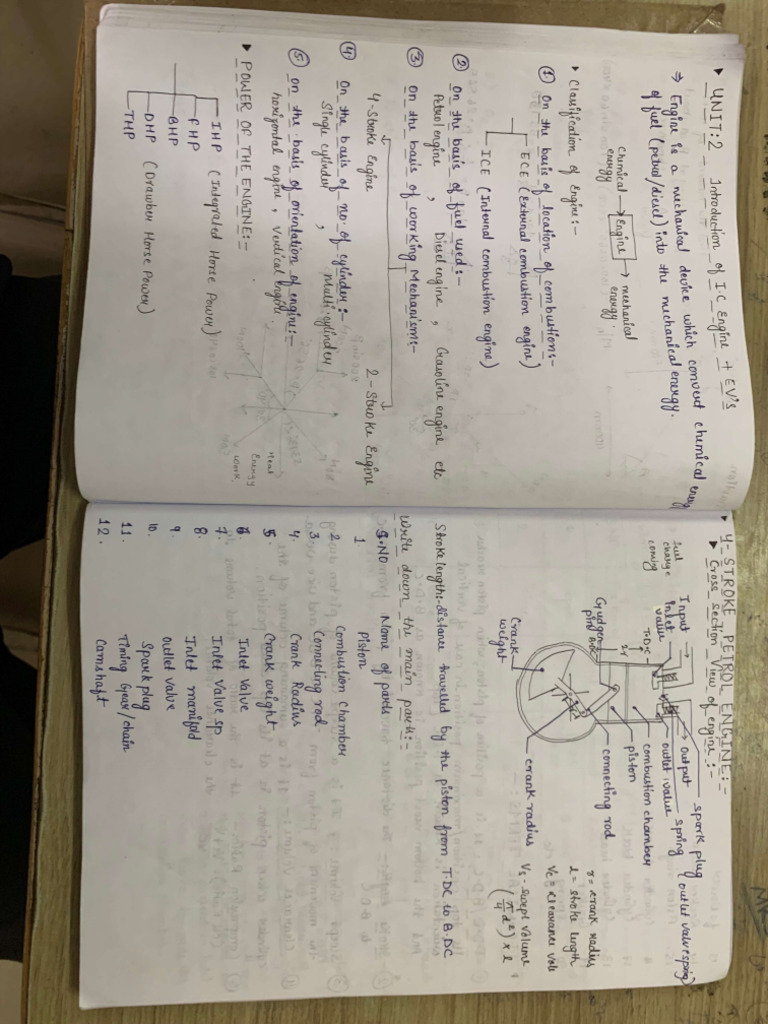 ▸ UNIT:2 Introduction of I.C Engine + EV's
⇒ Engine is a mechanical device which convert chemical energy
of fuel (petrol/diesel) into the mechanical energy.
Chemical energy → Engine → mechanical energy.
▸ Classification of Engine:-
① on the basis of location of combustions-
ECE (External combustion engine)
ICE (Internal combustion engine)
② on the basis of fuel used:-
Petrol engine, Diesel engine, Gasoline engine etc
③ on the basis of working Mechanism:-
4-Stroke Engine 2-Stroke Engine
④ on the basis of no. of cylinder:-
Single cylinder, Multi-cylinder
⑤ on the basis of orientation of engine:-
horizontal engine, Vertical engine
▸ POWER OF THE ENGINE:-
IHP (Integrated Horse Power)
FHP
BHP
DHP (Drawber Horse Power)
THP
Heat
Energy
Work
▸ 4-STROKE PETROL ENGINE:-
▸ Cross section View of engine:-
fuel
charge
coming
Input
inlet
value
T.D.C
B.D.C
Gudgeon
pin
Crank
weight
spark plug
output
spring (outlet valve spring)
outlet value
combustion chamber
piston
connecting rod
crank radius
r = crank radius
l = stroke length
Vc = clearance volu
Vs - swept volume
(π/4 d²) × l
Stroke length:- distance travelled by the piston from T.DC to B.DC
Write down the main parts:-
S.NO Name of parts
1 Piston
2. Combustion Chamber
3. Connecting rod
4. Crank Radius
5. Crank weight
6. Inlet Valve
7. Inlet Valve sp
8. Inlet manifold
9. outlet valve
10. Spark plug
11. Timing Gear/chain
12. Camshaft